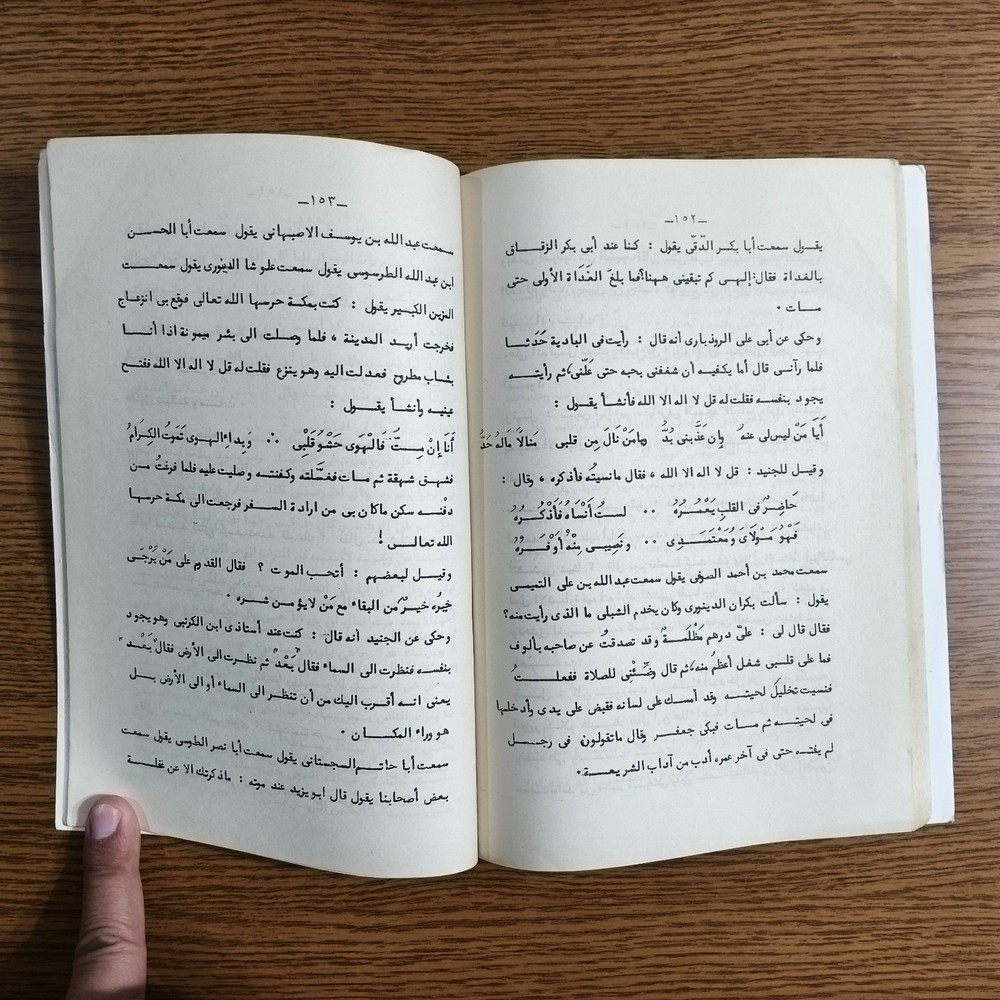 ـ١٥٢ـ
يقـول سمعت أبا بكـر الدّقّى يقول : كنـا عند أبى بكر الزقـاق
بالغداة فقال: إلهـى كم تبقينى ههنا؟ فما بلغَ الغَدَاة الأولى حتى
مـات ٠
وحكى عن أبى على الروذبارى أنه قال : رأيت فى البادية حَدَثـا
فلما رآنـى قال أما يكفيـه أن شغفنى بحبه حتى عَلَّنى، ثم رأيتـه
يجـود بنفسـه فقلت له قل لا اله الا الله فأنشأ يقول :
أيَا مَنْ ليس لى عنهُ وإن عَذَّبنى بُدُّ ويامَنْ نَالَ مِن قلبى مَنالاً مالهُ حَدُّ
وقيـل للجنيد : قل لا اله الا الله ، فقال مانسيتُه فأذكره ، وقال :
حَاضِرٌ فى القلبِ يَعْمُـرُهُ ٠٠ لستُ أَنْسَاهُ فَأَذْكُـرُهُ
فَهْوَ مَـوْلَاىَ وَمُعْتَمَـدِى ٠٠ ونَصِيبـى مِنْهُ أَوْفَـرُهُ
سمعت محمد بن أحمد الصوفى يقول سمعت عبد الله بن على التميـى
يقول : سألت بكران الدينورى وكان يخدم الشبلى ما الذى رأيت منه؟
فقال قال لى : علىّ درهم مَظْلَمَـةٌ وقد تصدقتُ عن صاحبه بألـوف
فما على قلبـى شغل أعظمُ منه، ثم قال وضّـئْنى للصلاة ففعلـتُ
فنسيت تخليلَ لحيتـه وقد أمسـك على لسانه فقبض على يدى وأدخلها
فى لحيتـه ثم مـات فبكى جعفـر وقال ماتقولون فى رجـل
لم يفتـه حتى فى آخر عمره أدب من آداب الشريعـة٠
ـ١٥٣ـ
سمعت عبد الله بـن يوسـف الاصبهانى يقول سمعت أبا الحسـن
ابن عبد الله الطرسوسى يقول سمعت علوشا الدينورى يقول سمعـت
المزين الكبـير يقول : كنت بمكـة حرسها الله تعالى فوقع بى انزعاج
فخرجت أريـد المدينـة ، فلما وصلت الى بئر ميمونة اذا أنـا
بشاب مطروح فعـدلت اليه وهو ينزع فقلت له قل لا اله الا الله ففتـح
عينيه وأنشـأ يقـول :
أَنَا إِنْ مِـتُّ فَالْهَوَى حَشْوُ قَلْبِى ∴ وَبِداءِ الهـوى تَمَوتُ الكِـرَامُ
فشهـق شهقـة ثم مـات فغسَّـلته وكفنتـه وصليت عليه فلما فرغتُ مـن
دفْنـه سكن ماكان بى من ارادة السـفر فرجعت الى مكـة حرسها
الله تعالـى !
وقيـل لبعضهـم : أتحـب الموت ؟ فقال القدوم على مَنْ يُرْجَـى
خيرُه خيـرٌ من البقاء مع مَنْ لايؤمـن شـره ٠
وحكى عن الجنيد أنـه قال : كنت عند أستاذى ابن الكرنبى وهو يجود
بنفسـه فنظرت الى السماء فقال "بَعْدٌ" ثم نظرت الى الأرض فقال "بَعْـد"
يعنى انـه أقـرب اليك من أن تنظر الى السماء أو الى الأرض بـل
هو وراء المكـان ٠
سمعت أبـا حاتـم السجستانى يقول سمعت أبا نصر الطوسى يقول سمعت
بعض أصحابنا يقول قال ابو يزيد عند موته : ماذكرتك الا عن غفلـة